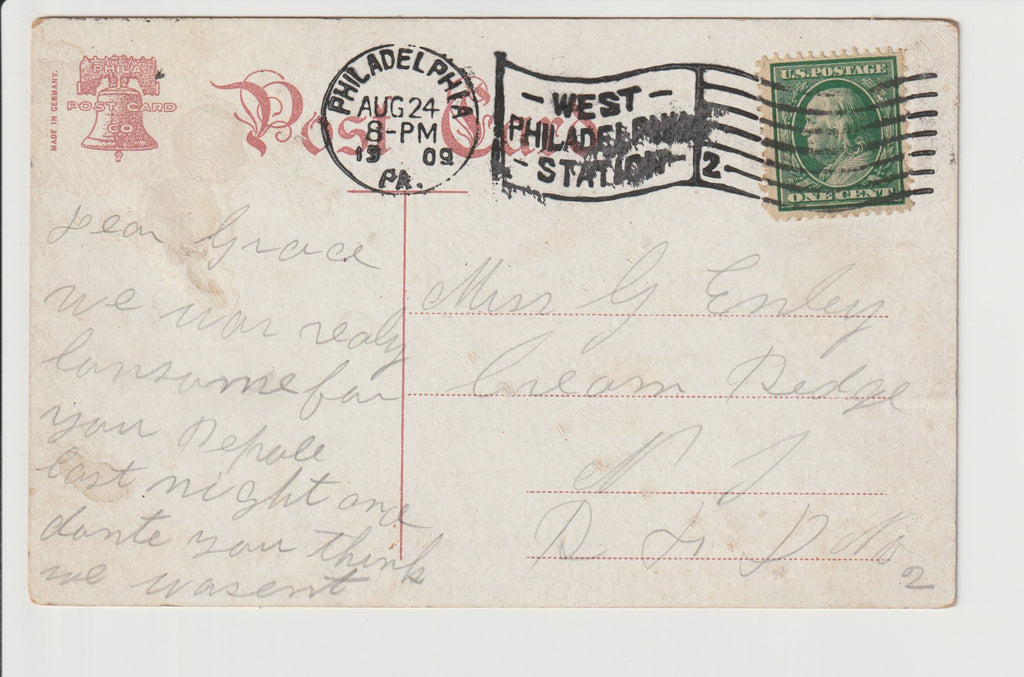 MADE IN GERMANY.
PHILA
POST CARD
CO
Post Card
PHILADELPHIA
AUG 24
8-PM
19 09
PA.
- WEST -
PHILADELPHIA
- STATION -
2
U.S. POSTAGE
ONE CENT
Dear Grace
we war realy
lonsome for
you Depole
last night and
donte you think
we wasent
Miss G Emley
Cream Redge
N J
R F D No
2